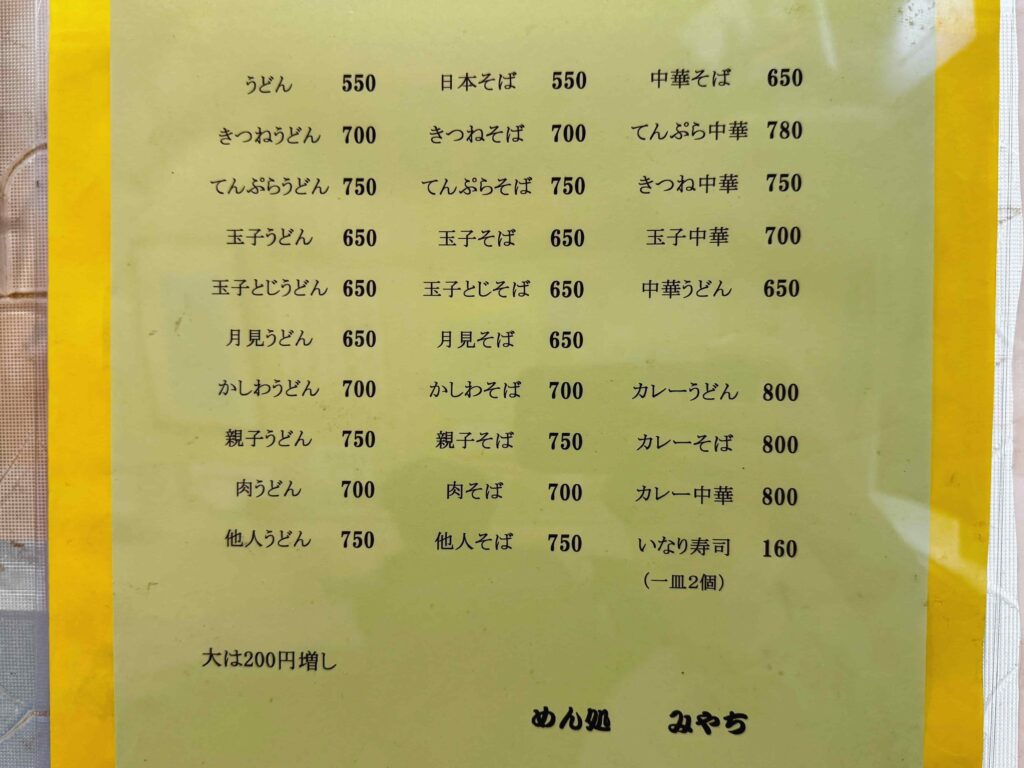 うどん 550 日本そば 550 中華そば 650
きつねうどん 700 きつねそば 700 てんぷら中華 780
てんぷらうどん 750 てんぷらそば 750 きつね中華 750
玉子うどん 650 玉子そば 650 玉子中華 700
玉子とじうどん 650 玉子とじそば 650 中華うどん 650
月見うどん 650 月見そば 650
かしわうどん 700 かしわそば 700 カレーうどん 800
親子うどん 750 親子そば 750 カレーそば 800
肉うどん 700 肉そば 700 カレー中華 800
他人うどん 750 他人そば 750 いなり寿司 160
（一皿２個）
大は200円増し
めん処 みやち